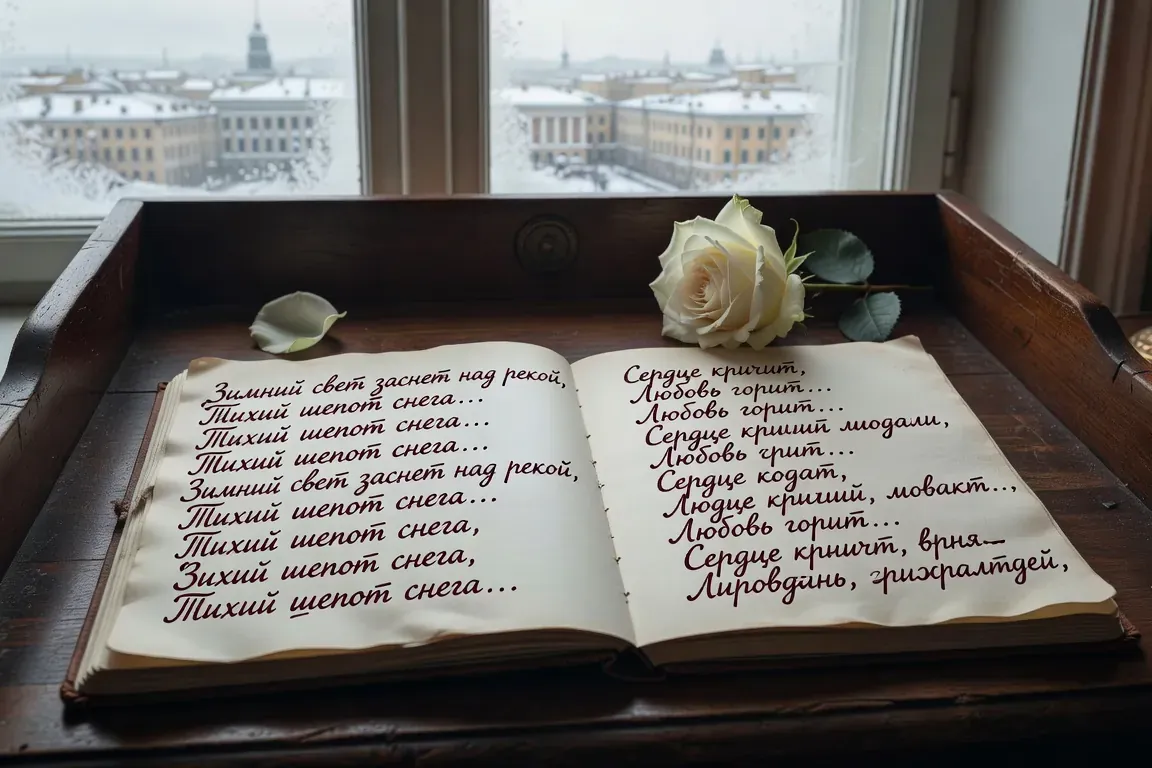 Зимний свет заснет над рекой,
Тихий шепот снега...
Тихий шепот снега...
Тихий шепот снега...
Зимний свет заснет над рекой,
Тихий шепот снега...
Тихий шепот снега,
Зихий шепот снега,
Тихий шепот снега...
Сердце кричит,
Любовь горит...
Любовь горит...
Сердце
Любовь
Сердце кодат,
Любовь горит...
Сердце